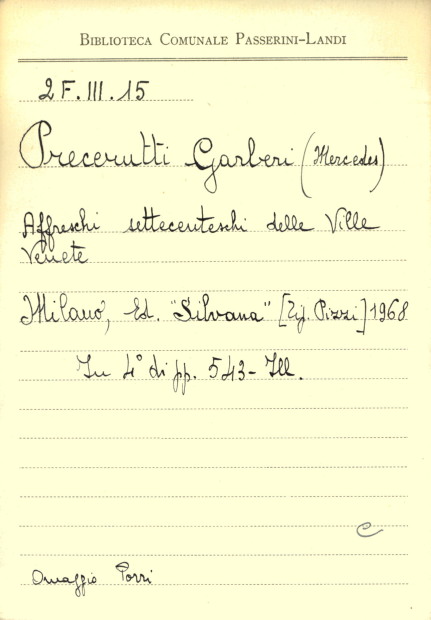 BIBLIOTECA COMUNALE PASSERINI-LANDI
2 F. III. 15
Precerutti Garberi (Mercedes)
Affreschi settecenteschi delle Ville
Venete
Milano, Ed. "Silvana" [Tip. Pizzi] 1968
In 4° di pp. 543 - Ill.
C
Omaggio Porri